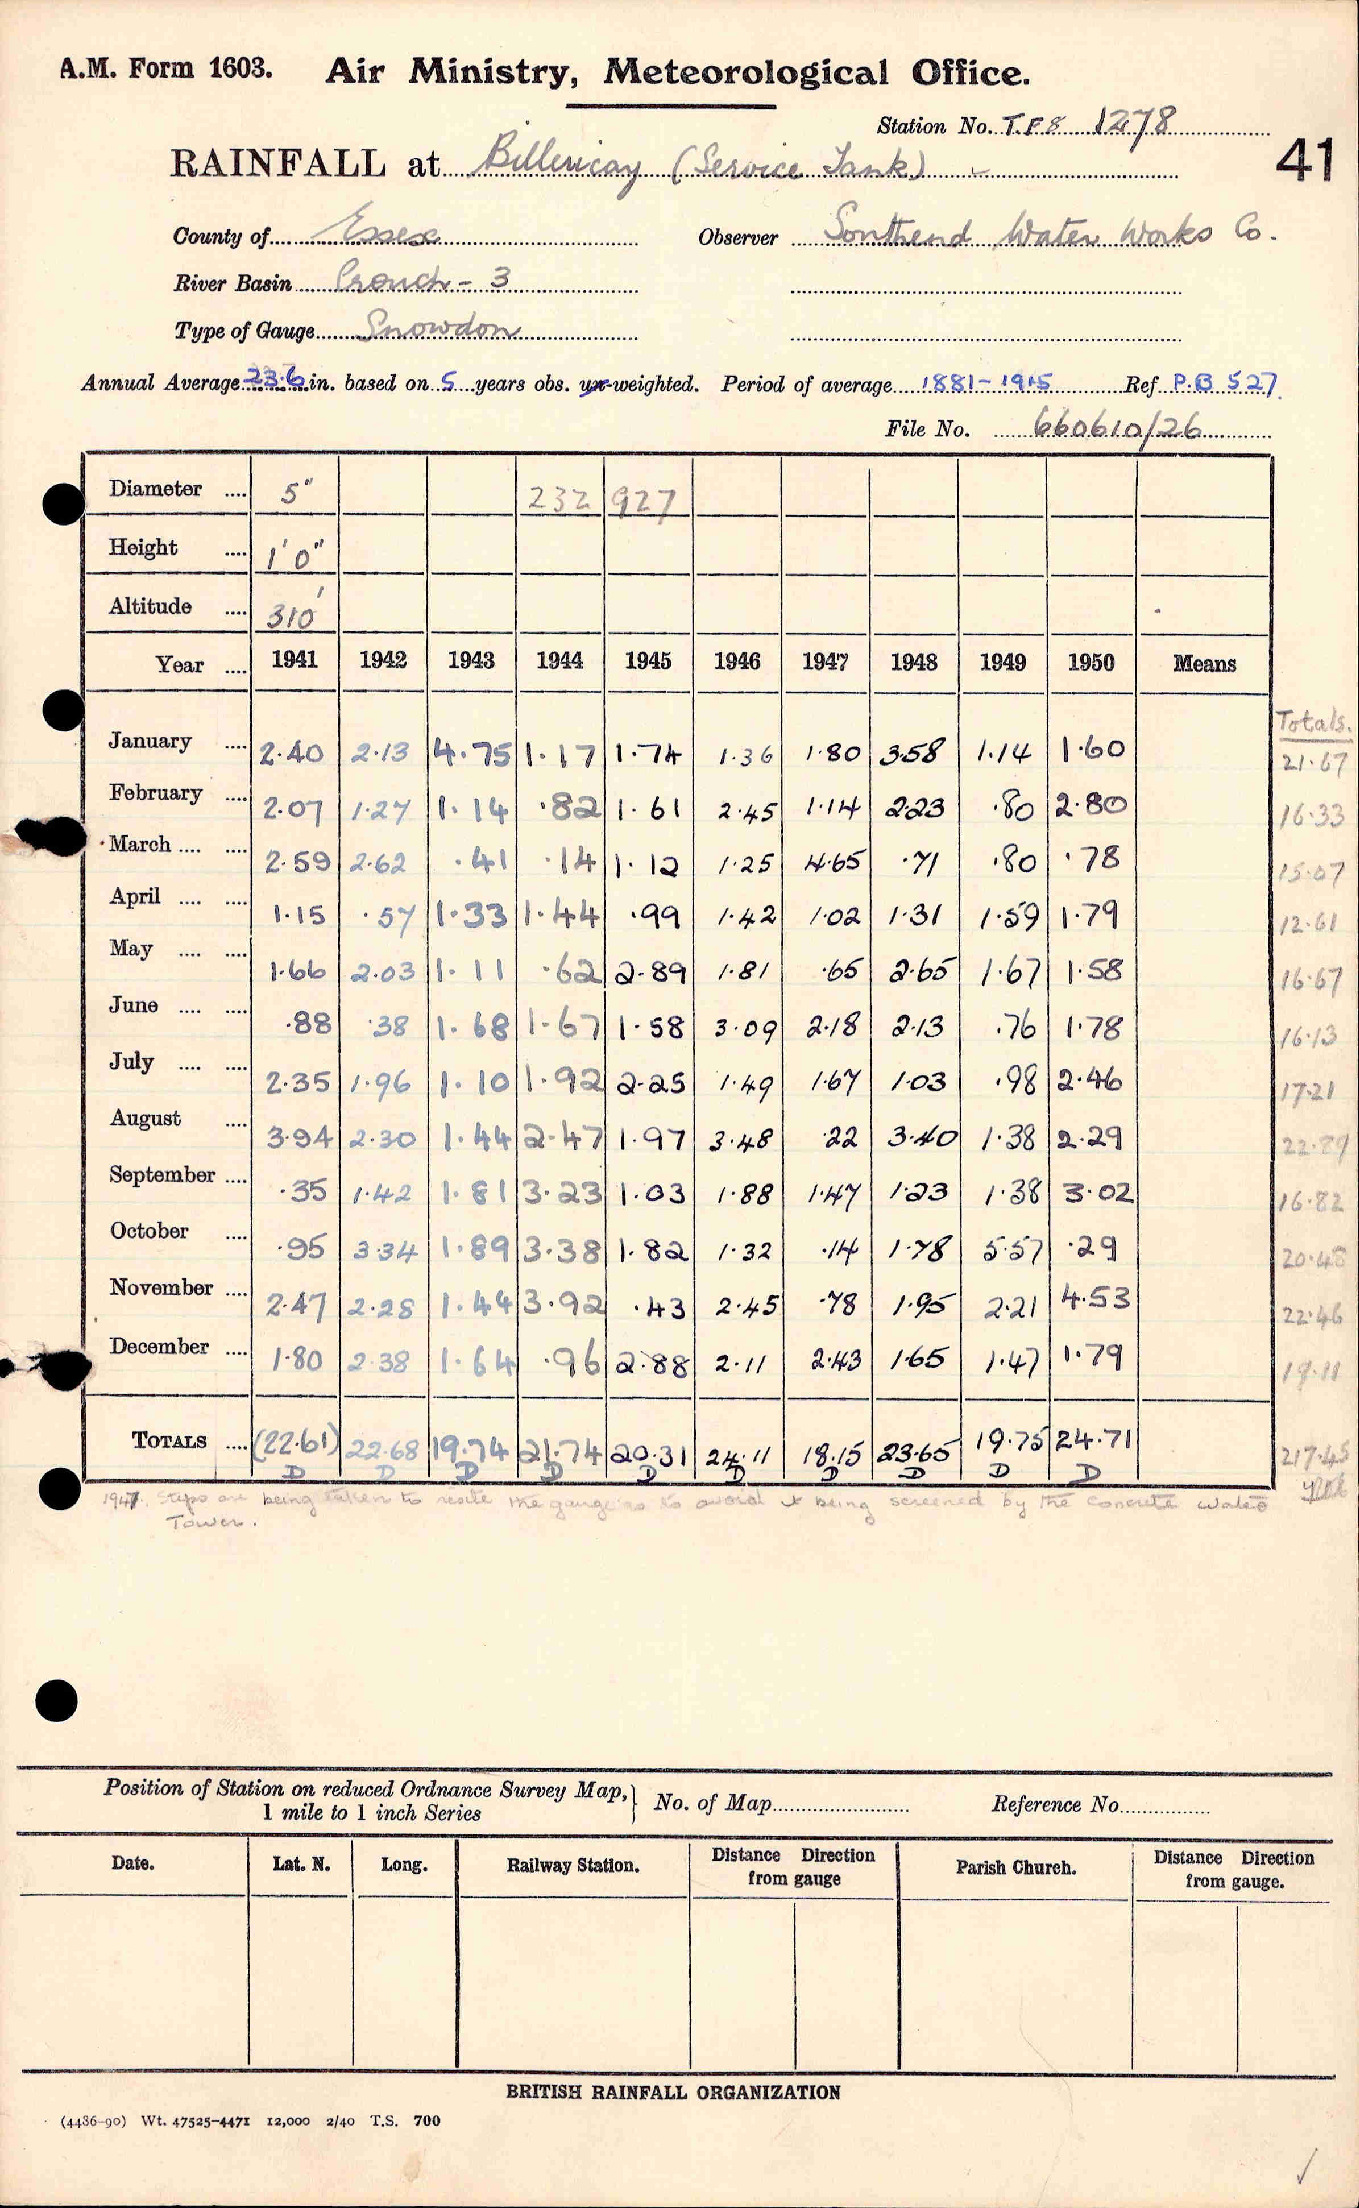 A.M. Form 1603. Air Ministry, Meteorological Office.
Station No. T.F8 1278
RAINFALL at Billericay (Service Tank) 41
County of Essex Observer Southend Water Works Co.
River Basin Crouch - 3
Type of Gauge Snowdon
Annual Average 23.6 in. based on 5 years obs. un-weighted. Period of average 1881-1915 Ref P.B 527
File No. 660610/26
Diameter .... 5" 232 927
Height .... 1' 0"
Altitude .... 310'
Year .... 1941 1942 1943 1944 1945 1946 1947 1948 1949 1950 Means
Totals.
January .... 2.40 2.13 4.75 1.17 1.74 1.36 1.80 3.58 1.14 1.60 21.67
February .... 2.07 1.27 1.14 .82 1.61 2.45 1.14 2.23 .80 2.80 16.33
March .... .... 2.59 2.62 .41 .14 1.12 1.25 4.65 .71 .80 .78 15.07
April .... .... 1.15 .57 1.33 1.44 .99 1.42 1.02 1.31 1.59 1.79 12.61
May .... .... 1.66 2.03 1.11 .62 2.89 1.81 .65 2.65 1.67 1.58 16.67
June .... .... .88 .38 1.68 1.67 1.58 3.09 2.18 2.13 .76 1.78 16.13
July .... .... 2.35 1.96 1.10 1.92 2.25 1.49 1.67 1.03 .98 2.46 17.21
August .... 3.94 2.30 1.44 2.47 1.97 3.48 .22 3.40 1.38 2.29 22.89
September .... .35 1.42 1.81 3.23 1.03 1.88 1.47 1.23 1.38 3.02 16.82
October .... .95 3.34 1.89 3.38 1.82 1.32 .14 1.78 5.57 .29 20.48
November .... 2.47 2.28 1.44 3.92 .43 2.45 .78 1.95 2.21 4.53 22.46
December .... 1.80 2.38 1.64 .96 2.88 2.11 2.43 1.65 1.47 1.79 19.11
TOTALS .... (22.61) 22.68 19.74 21.74 20.31 24.11 18.15 23.65 19.75 24.71 217.45
D D D D D D D D D D
1947. Steps are being taken to resite the gauge so as to avoid it being screened by the concrete water
Tower.
Position of Station on reduced Ordnance Survey Map,
1 mile to 1 inch Series
No. of Map Reference No.
Date. Lat. N. Long. Railway Station. Distance Direction from gauge Parish Church. Distance Direction from gauge.
BRITISH RAINFALL ORGANIZATION
(4486-90) Wt. 47525-4471 12,000 2/40 T.S. 700